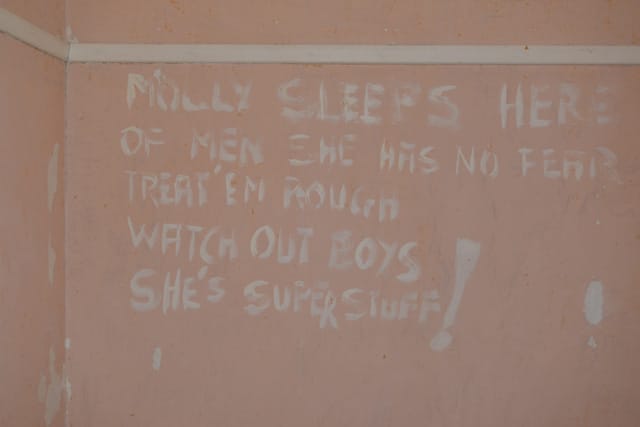 MOLLY SLEEPS HERE
OF MEN SHE HAS NO FEAR
TREAT'EM ROUGH
WATCH OUT BOYS
SHE'S SUPERSTUFF!